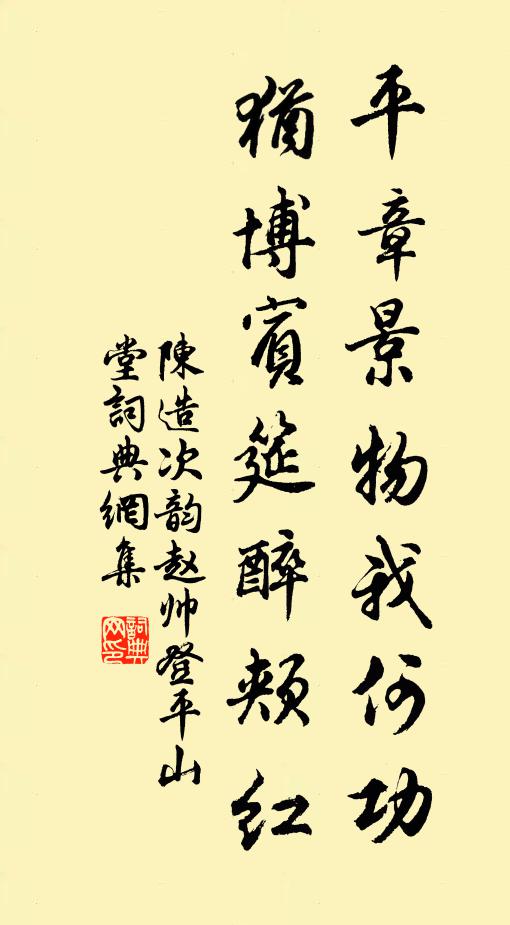 平章景物我何功
猶博賓筵醉頰紅
陳造次韵赵帅登平山
堂詞典網集
詞典网印